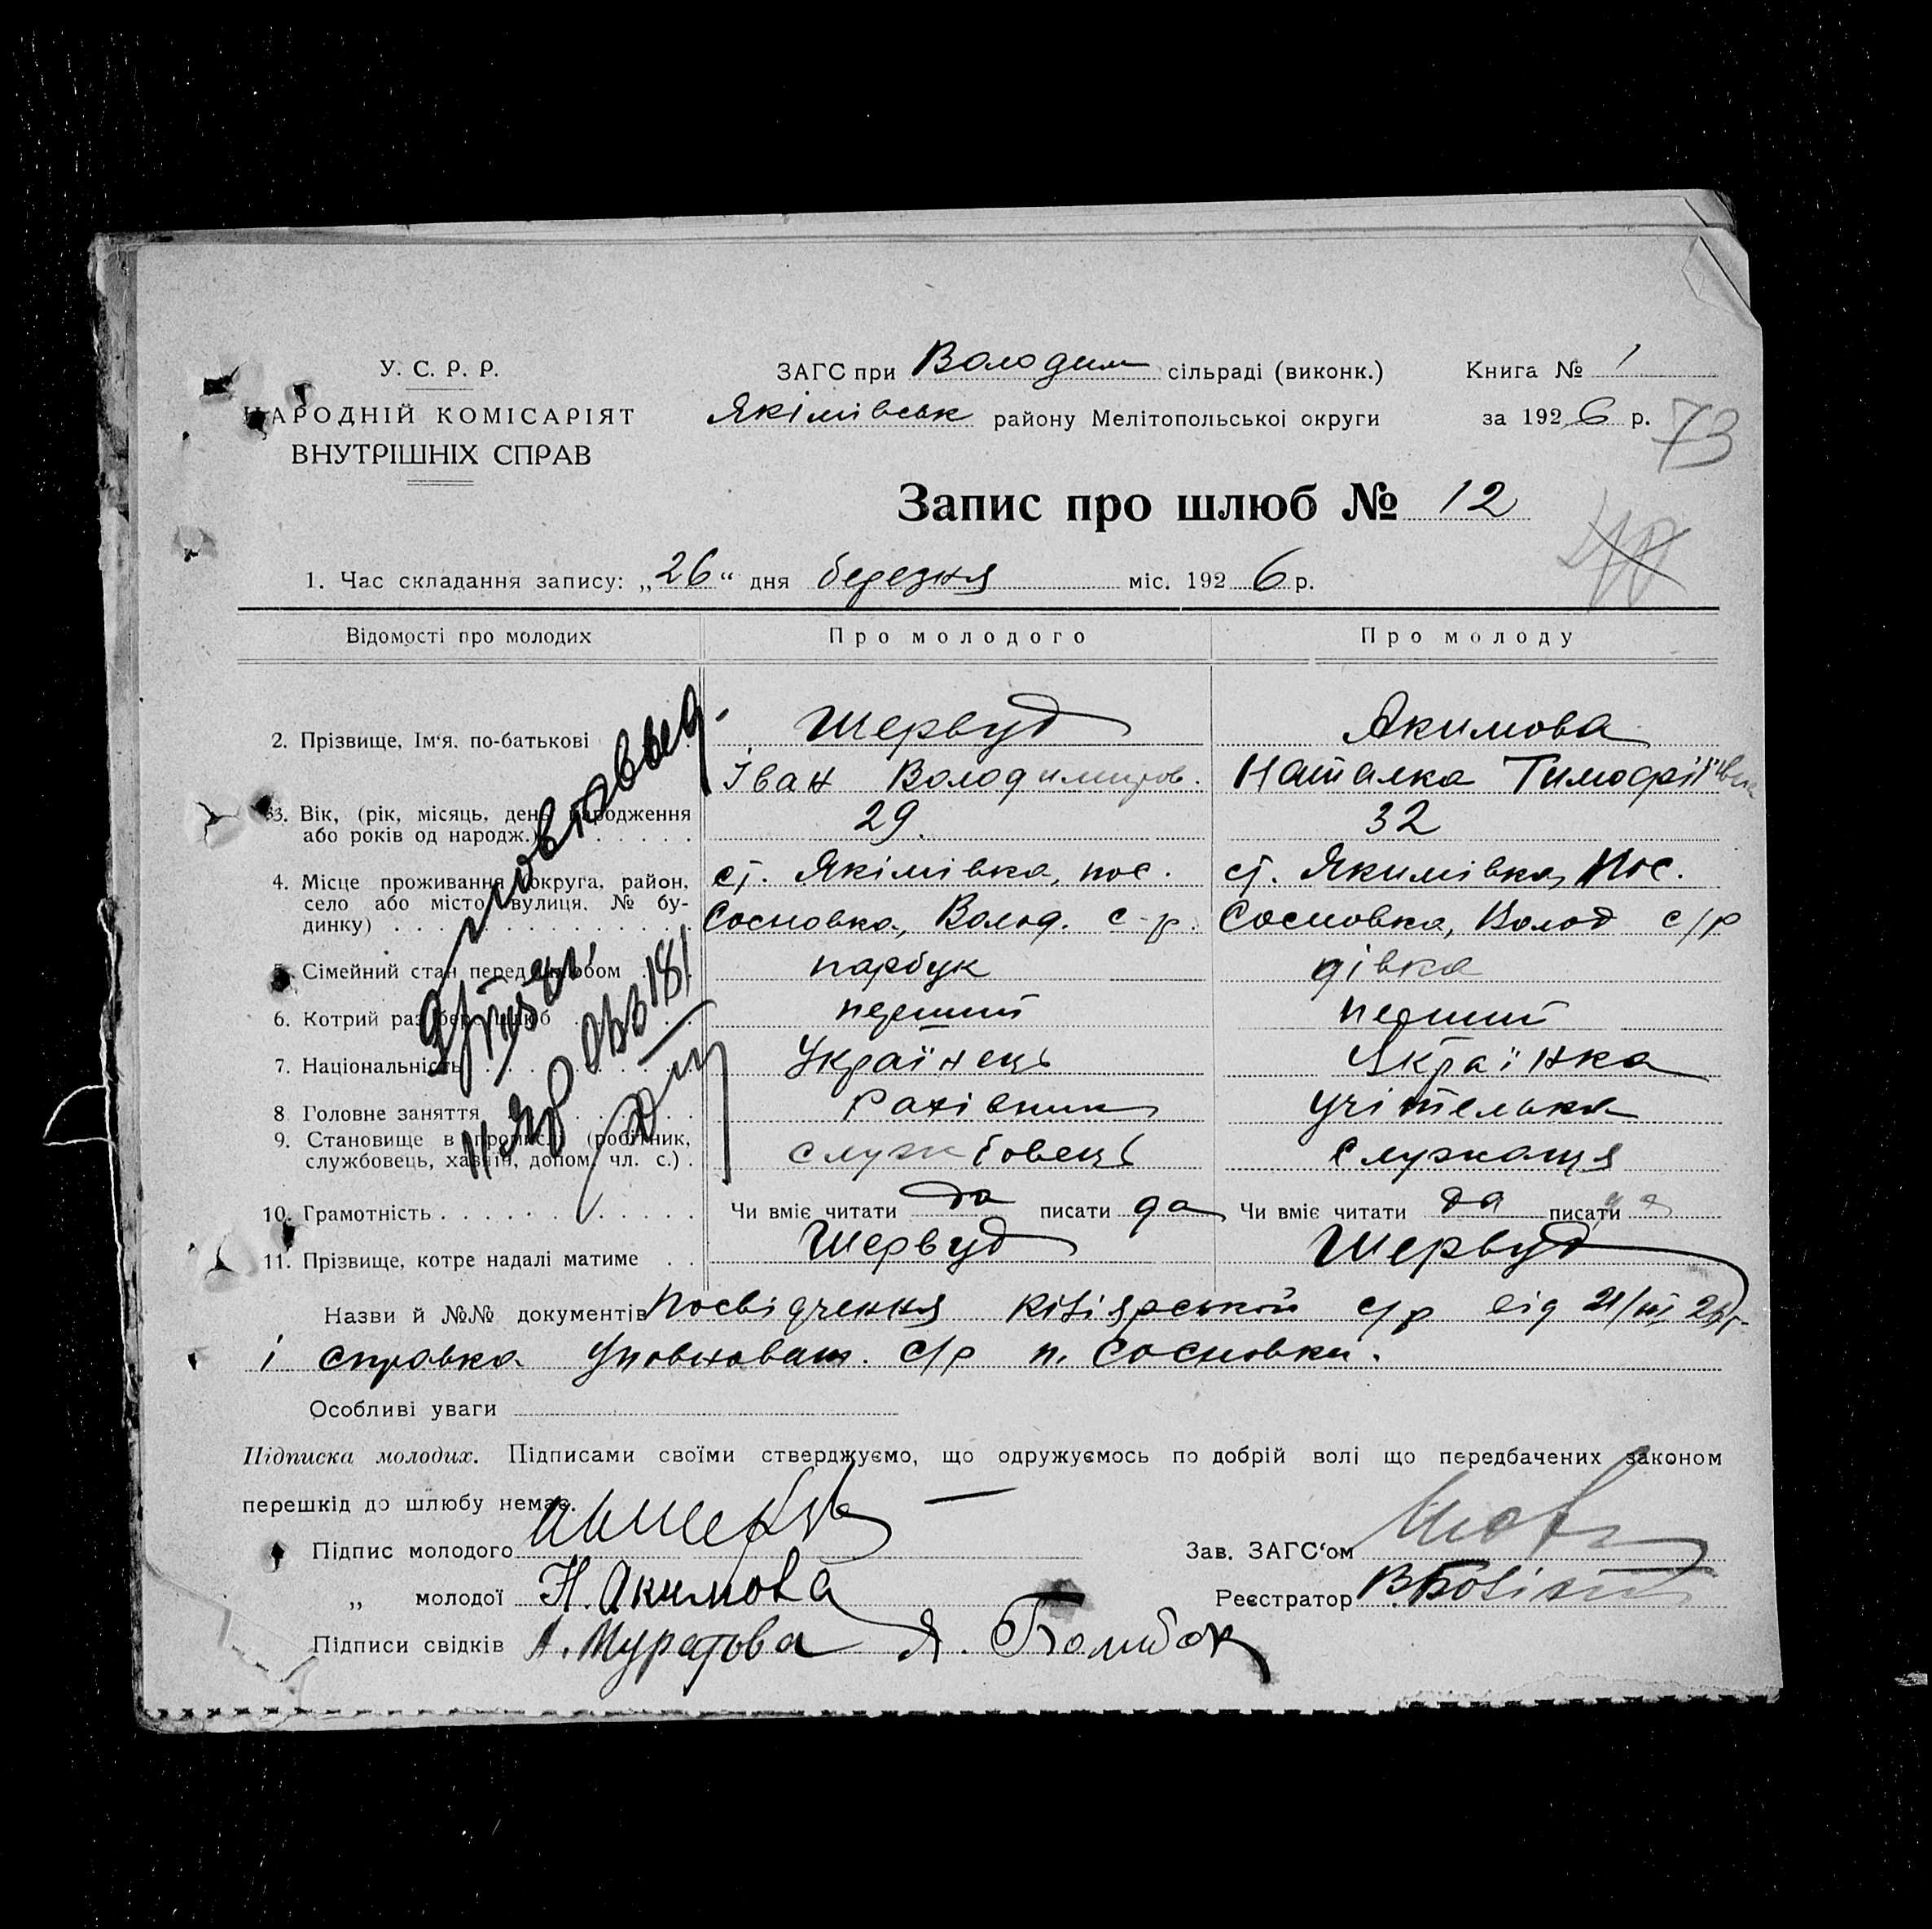 У. С. Р. Р.
НАРОДНІЙ КОМІСАРІЯТ
ВНУТРІШНІХ СПРАВ
ЗАГС при Володим сільраді (виконк.)
Якімівськ району Мелітопольської округи
Книга № 1
за 1926 р.
73
Запис про шлюб № 12
1. Час складання запису: „26“ дня березня міс. 1926 р.
Відомості про молодих Про молодого Про молоду
2. Прізвище, Ім'я, по-батькові Шервуд Якимова
Іван Володимиров. Наталка Тимофіївна
3. Вік, (рік, місяць, день народження 29. 32
або років од народж.)
4. Місце проживання (округа, район, ст. Якімівка, пос. ст. Якимівка, Пос.
село або місто, вулиця, № бу- Сосновка, Волод. с-р. Сосновка, Волод с/р
динку)
5. Сімейний стан перед шлюбом парубук дівка
6. Котрий раз бере шлюб перший перший
7. Національність Українець Українка
8 Головне заняття Рахівник учітелька
9. Становище в промислі (робітник, службовець служащя
службовець, хазяїн, допом. чл. с.)
10. Грамотність Чи вміє читати да писати да Чи вміє читати да писати да
11. Прізвище, котре надалі матиме Шервуд Шервуд
181
Назви й №№ документів Посвідчення с/р від 21/III 26 г.
і справка Уповноваж. с/р п. Сосновки.
Особливі уваги
Підписка молодих. Підписами своїми стверджуємо, що одружуємось по добрій волі що передбачених законом
перешкід до шлюбу немає.
Підпис молодого
Зав. ЗАГС'ом
„ молодої Н. Якимова
Реєстратор
Підписи свідків А. Муратова Я.